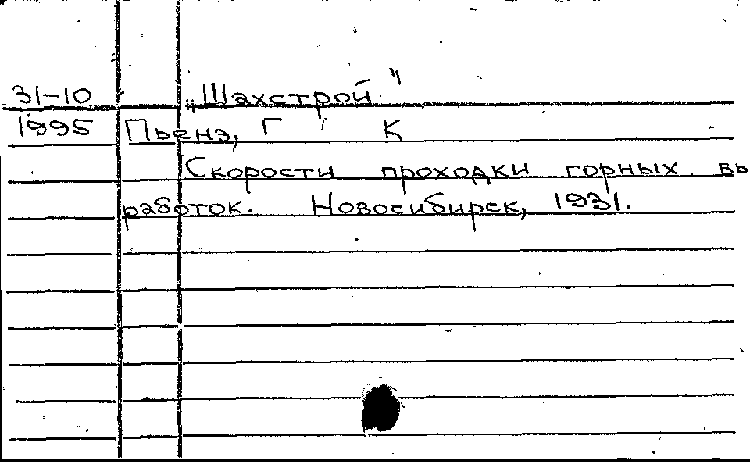 31-10 „Шахстрой"
1995 Пьенэ, Г К
Скорости проходки горных вы
работок. Новосибирск, 1931.